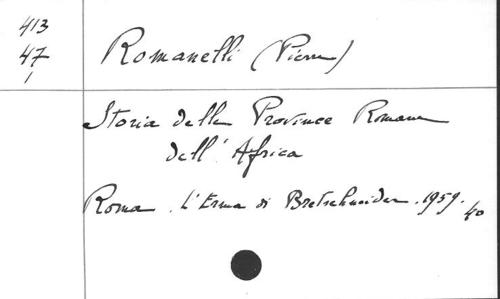 413
47
1
Romanelli (Pierre)
Storia delle Province Romane
dell'Africa
Roma. L'Erma di Bretschneider. 1959. 4o